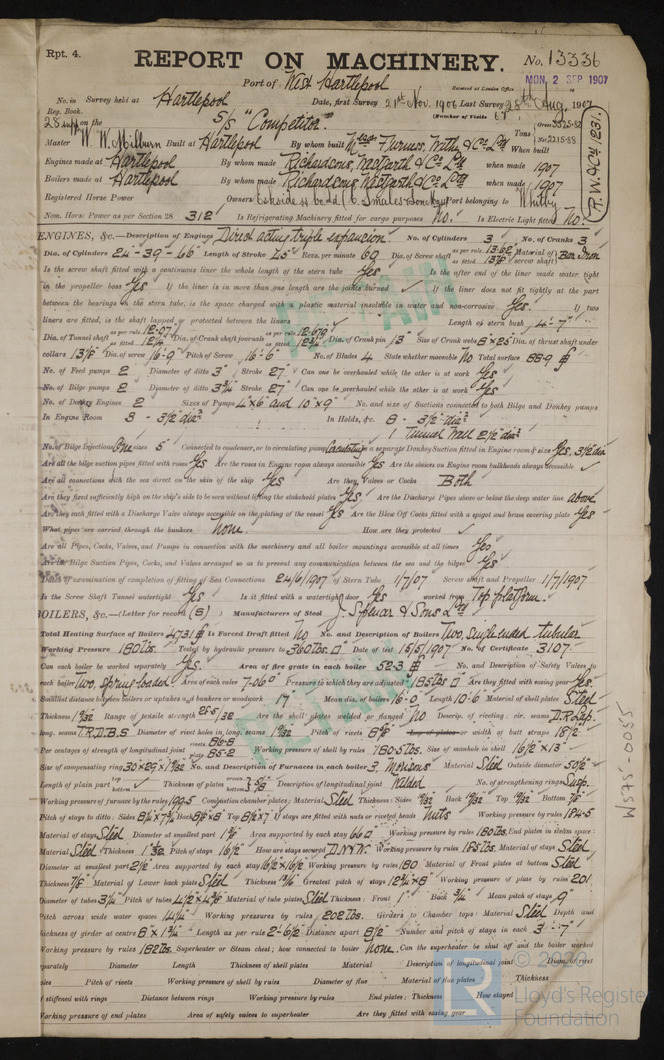 Rpt. 4.
REPORT ON MACHINERY.
No. 13336
Port of West Hartlepool
Received at London Office MON, 2 SEP 1907
No. in Survey held at Hartlepool Date, first Survey 21st Nov. 1906 Last Survey 28th Aug. 1907
Reg. Book. (Number of Visits
28 supp on the S/S "Competitor". Tons Gross 3525.82 Net 2215.88
Master W. W. Milburn Built at Hartlepool By whom built Messrs Furness, Withy & Co Ltd When built
Engines made at Hartlepool By whom made Richardsons Westgarth & Co Ltd when made 1907
Boilers made at Hartlepool By whom made Richardsons Westgarth & Co Ltd when made 1907
Registered Horse Power Owners Port belonging to Whitby
Nom. Horse Power as per Section 28 312 Is Refrigerating Machinery fitted for cargo purposes No. Is Electric Light fitted No.
ENGINES, &c.—Description of Engines Direct acting triple expansion. No. of Cylinders 3 No. of Cranks 3
Dia. of Cylinders 24 - 39 - 66 Length of Stroke 45 Revs. per minute 60 Dia. of Screw shaft as per rule 13.62" as fitted 13 7/8" Material of screw shaft Bar Iron
Is the screw shaft fitted with a continuous liner the whole length of the stern tube Yes. Is the after end of the liner made water tight
in the propeller boss Yes If the liner is in more than one length are the joints burned ✓ If the liner does not fit tightly at the part
between the bearings in the stern tube, is the space charged with a plastic material insoluble in water and non-corrosive Yes. If two
liners are fitted, is the shaft lapped or protected between the liners Length of stern bush 4'-7"
Dia. of Tunnel shaft as per rule 12.07 as fitted 12 1/4 Dia. of Crank shaft journals as per rule 12.679 as fitted 12 3/4 Dia. of Crank pin 13" Size of Crank webs 8 x 25 Dia. of thrust shaft under
collars 13 1/8" Dia. of screw 16'-9" Pitch of Screw 16'-6" No. of Blades 4 State whether moveable No Total surface 88.9
No. of Feed pumps 2 Diameter of ditto 3" Stroke 27" Can one be overhauled while the other is at work Yes
No. of Bilge pumps 2 Diameter of ditto 3 3/4 Stroke 27" Can one be overhauled while the other is at work Yes
No. of Donkey Engines 2 Sizes of Pumps 4"x6" and 10"x9" No. and size of Suctions connected to both Bilge and Donkey pumps
In Engine Room 3 - 3 1/2" dia. In Holds, &c. 8 - 3 1/2" dia.
1 Tunnel Well 2 1/2" dia.
No. of Bilge Injections One sizes 5" Connected to condenser, or to circulating pump Circulating Is a separate Donkey Suction fitted in Engine room & size Yes, 3 1/2" dia
Are all the bilge suction pipes fitted with roses Yes Are the roses in Engine room always accessible Yes Are the sluices on Engine room bulkheads always accessible ✓
Are all connections with the sea direct on the skin of the ship Yes Are they Valves or Cocks Both
Are they fixed sufficiently high on the ship's side to be seen without lifting the stokehold plates Yes. Are the Discharge Pipes above or below the deep water line above
Are they each fitted with a Discharge Valve always accessible on the plating of the vessel Yes Are the Blow Off Cocks fitted with a spigot and brass covering plate Yes
What pipes are carried through the bunkers None. How are they protected ✓
Are all Pipes, Cocks, Valves, and Pumps in connection with the machinery and all boiler mountings accessible at all times Yes
Are the Bilge Suction Pipes, Cocks, and Valves arranged so as to prevent any communication between the sea and the bilges Yes
Dates of examination of completion of fitting of Sea Connections 24/6/1907 of Stern Tube 1/7/07 Screw shaft and Propeller 1/7/1907
Is the Screw Shaft Tunnel watertight Yes Is it fitted with a watertight door Yes worked from Top platform.
BOILERS, &c.—(Letter for record (S) Manufacturers of Steel J. Spencer & Sons Ltd
Total Heating Surface of Boilers 4731 Is Forced Draft fitted No No. and Description of Boilers Two, single ended tubular
Working Pressure 180 lbs. Tested by hydraulic pressure to 360 lbs. Date of test 15/5/1907 No. of Certificate 3107.
Can each boiler be worked separately Yes. Area of fire grate in each boiler 52.3 No. and Description of Safety Valves to
each boiler Two, spring loaded Area of each valve 7.06" Pressure to which they are adjusted 185 lbs Are they fitted with easing gear Yes.
Smallest distance between boilers or uptakes and bunkers or woodwork 17" Mean dia. of boilers 16'-0 Length 10'-6 Material of shell plates Steel
Thickness 1 9/32 Range of tensile strength 28.5/32 Are the shell plates welded or flanged No Descrip. of riveting: cir. seams D.R.Lap.
long. seams T.R.D.B.S. Diameter of rivet holes in long. seams 1 9/32 Pitch of rivets 8 7/8" Lap of plates or width of butt straps 18 1/2
Per centages of strength of longitudinal joint rivets 86.8 plate 85.2 Working pressure of shell by rules 180.5 lbs. Size of manhole in shell 16 1/2 x 13"
Size of compensating ring 30 x 29 x 1 9/32 No. and Description of Furnaces in each boiler 3, Morisons Material Steel Outside diameter 50 1/2"
Length of plain part top bottom Thickness of plates crown bottom 5/8 Description of longitudinal joint Welded No. of strengthening rings Susp.
Working pressure of furnace by the rules 199.5 Combustion chamber plates: Material Steel Thickness: Sides 19/32 Back 19/32 Top 19/32 Bottom 7/8
Pitch of stays to ditto: Sides 8 1/2 x 7 3/4 Back 8 1/2 x 8 Top 8 1/2 x 7 If stays are fitted with nuts or riveted heads Nuts Working pressure by rules 184.5
Material of stays Steel Diameter at smallest part 1 5/8 Area supported by each stay 66 Working pressure by rules 180 lbs. End plates in steam space:
Material Steel Thickness 1 5/32 Pitch of stays 16 1/2 How are stays secured D.N.&W. Working pressure by rules 185 lbs. Material of stays Steel
Diameter at smallest part 2 1/2 Area supported by each stay 16 1/2 x 16 1/2 Working pressure by rules 180 Material of Front plates at bottom Steel
Thickness 7/8 Material of Lower back plate Steel Thickness 13/16 Greatest pitch of stays 12 3/4 x 8" Working pressure of plate by rules 201
Diameter of tubes 3 1/4 Pitch of tubes 4 1/2 x 4 3/8 Material of tube plates Steel Thickness: Front 1" Back 3/4" Mean pitch of stays 9"
Pitch across wide water spaces 14 1/4 Working pressures by rules 202 lbs. Girders to Chamber tops: Material Steel Depth and
thickness of girder at centre 8 x 1 3/4 Length as per rule 2'-6 1/2" Distance apart 8 1/2 Number and pitch of stays in each 3 - 7"
Working pressure by rules 182 lbs. Superheater or Steam chest; how connected to boiler None. Can the superheater be shut off and the boiler worked
separately Diameter Length Thickness of shell plates Material Description of longitudinal joint Diam. of rivet
holes Pitch of rivets Working pressure of shell by rules Diameter of flue Material of flue plates Thickness
If stiffened with rings Distance between rings Working pressure by rules End plates: Thickness How stayed
Working pressure of end plates Area of safety valves to superheater Are they fitted with easing gear
RETAIN
RETAIN
W575-0055
© 2020
Lloyd's Register
Foundation